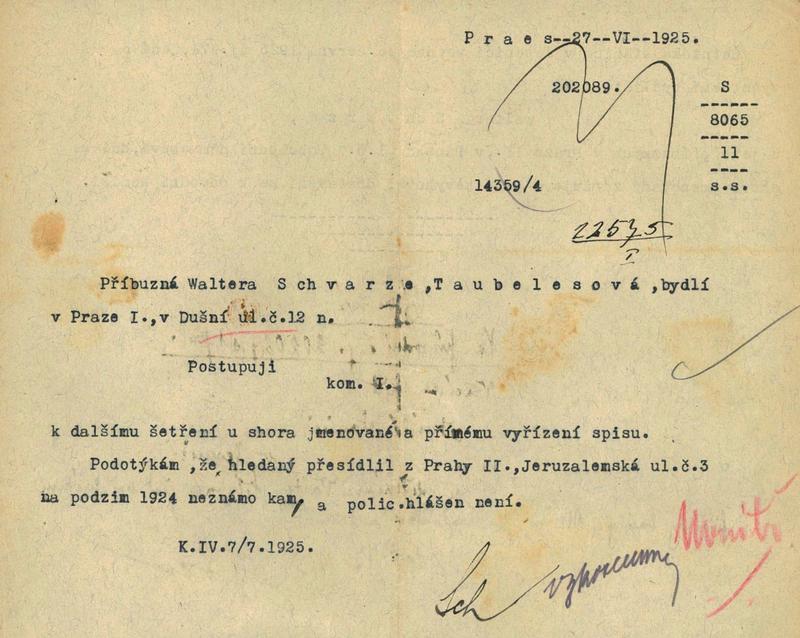 P r a e s--27--VI--1925.
202089.
S
8065
11
s.s.
14359/4
22575
I
Příbuzná Waltera S c h v a r z e ,T a u b e l e s o v á ,bydlí
v Praze I.,v Dušní ul.č.12 n.
Postupuji
kom. I.
k dalšímu šetření u shora jmenované a přímému vyřízení spisu.
Podotýkám ,že hledaný přesídlil z Prahy II.,Jeruzalemská ul.č.3
na podzim 1924 neznámo kam, a polic.hlášen není.
K.IV.7/7.1925.
Sch